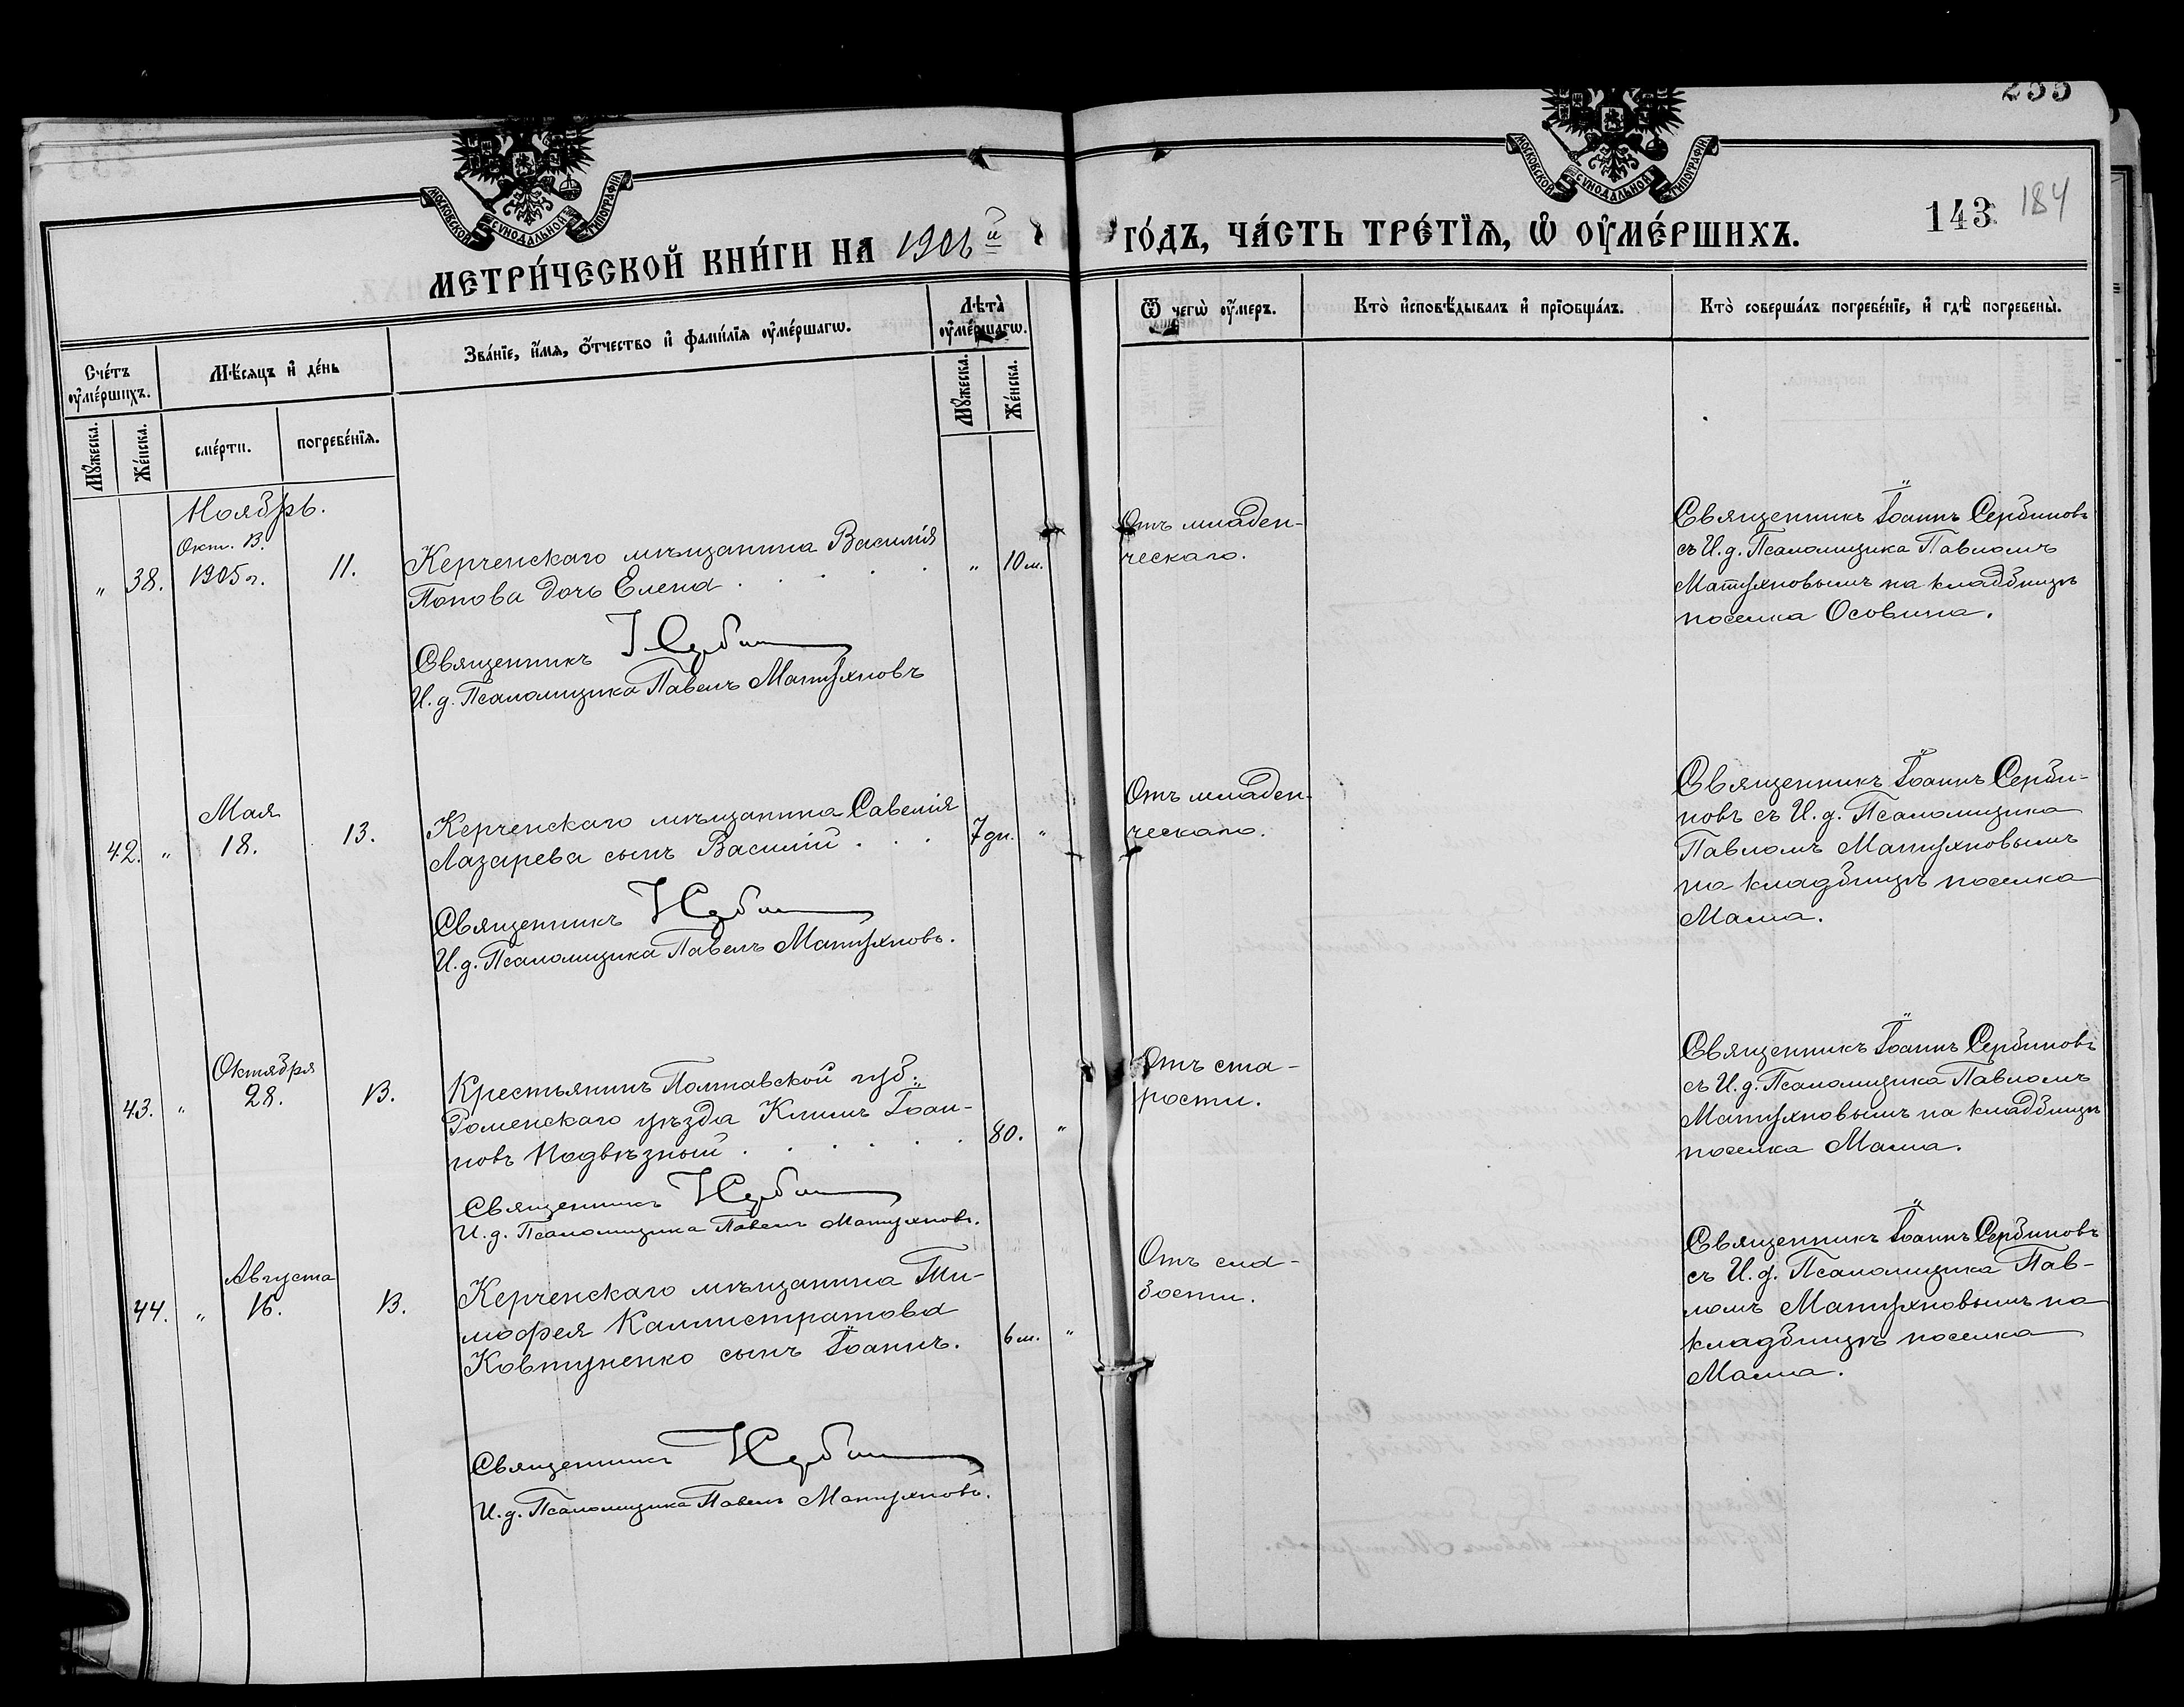 255
МОСКОВСКОЙ СѴНОДАЛЬНОЙ ТИПОГРАФІИ
МОСКОВСКОЙ СѴНОДАЛЬНОЙ ТИПОГРАФІИ
143 184
МЕТРИ́ЧЕСКОЙ КНИ́ГИ НА 1906й
ГО́ДЪ, ЧА́СТЬ ТРЕ́ТЇѦ, Ѡ҆ ОУ҆МЕ́РШИХЪ.
Сче́тъ оу҆ме́ршихъ.
Мѣ́сяцъ и҆ де́нь
Зва́нїе, и҆́мѧ, ѻ҆́тчество и҆ фами́лїѧ оу҆ме́ршагѡ.
Лѣ́та̀ оу҆ме́ршагѡ.
Ѿ чегѡ̀ оу҆́меръ.
Кто̀ и҆сповѣ́дывалъ и҆ прїѻбща́лъ.
Кто̀ соверша́лъ погребе́нїе, и҆ гдѣ̀ погребены̀.
Мꙋ́жеска.
Же́нска.
сме́рти.
погребе́нїѧ.
Мꙋ́жеска.
Же́нска.
Ноябрь.
Окт. 13.
" 38. 1905 г. 11.
Керченскаго мѣщанина Василія
Попова дочь Елена . . . . . " 10 м.
Священникъ І. Сербин
И. д. Псаломщика Павелъ Матухновъ
Отъ младен-
ческаго.
Священникъ Іоаннъ Сербиновъ
съ И. д. Псаломщика Павломъ
Матухновымъ на кладбищѣ
поселка Осовина.
Мая
42. " 18. 13.
Керченскаго мѣщанина Савелія
Лазарева сынъ Василій . . . 7 дн. "
Священникъ І Сербин
И. д. Псаломщика Павелъ Матухновъ.
Отъ младен-
ческаго.
Священникъ Іоаннъ Серби-
новъ съ И. д. Псаломщика
Павломъ Матухновымъ
на кладбищѣ поселка
Мама.
Октября
43. " 28. 13.
Крестьянинъ Полтавской губ.
Роменскаго уѣзда Климъ Іоан-
новъ Подвѣзный . . . . . 80. "
Священникъ І Сербин
И. д. Псаломщика Павелъ Матухновъ.
Отъ ста-
рости.
Священникъ Іоаннъ Сербиновъ
съ И. д. Псаломщика Павломъ
Матухновымъ на кладбищѣ
поселка Мама.
Августа
44. " 16. 13.
Керченскаго мѣщанина Ти-
мофея Каллистратова
Ковтуненко сынъ Іоаннъ. 6 м. "
Священникъ І Сербин
И. д. Псаломщика Павелъ Матухновъ.
Отъ сла-
бости.
Священникъ Іоаннъ Сербиновъ
съ И. д. Псаломщика Пав-
ломъ Матухновымъ на
кладбищѣ поселка
Мама.